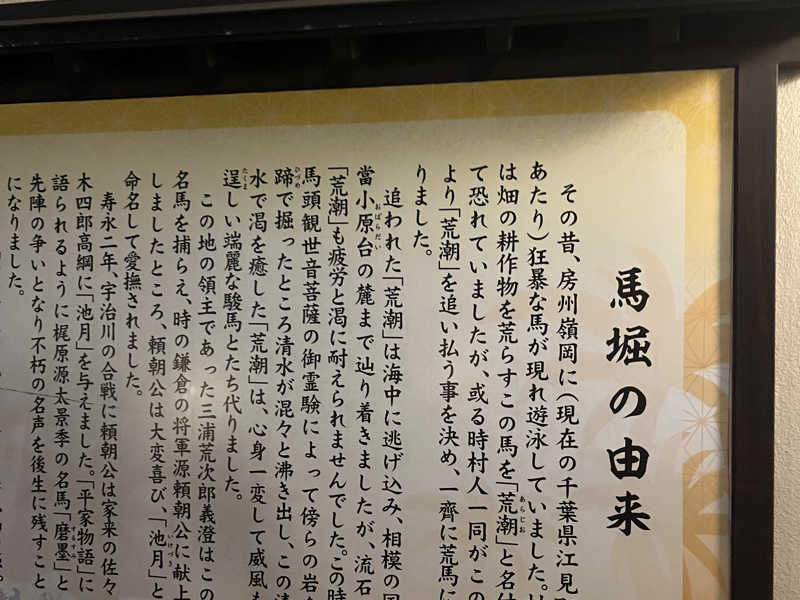 馬堀の由来
その昔、房州嶺岡に(現在の千葉県江見
あたり)狂暴な馬が現れ遊泳していました。
は畑の耕作物を荒らすこの馬を「荒潮」と名付
あらじお
て恐れていましたが、或る時村人一同がこの
より「荒潮」を追い払う事を決め、一齊に荒馬に
りました。
追われた「荒潮」は海中に逃げ込み、相模の国
當小原台の麓まで辿り着きましたが、流石
おばらだい
「荒潮」も疲労と渇に耐えられませんでした。この時
馬頭観世音菩薩の御霊験によって傍らの岩を
蹄で掘ったところ清水が混々と沸き出し、この清
ひづめ
水で渇を癒した「荒潮」は、心身一変して威風も
逞しい端麗な駿馬とたち代りました。
たくま
この地の領主であった三浦荒次郎義澄はこの
名馬を捕らえ、時の鎌倉の将軍源頼朝公に献上
しましたところ、頼朝公は大変喜び、「池月」と
いけづき
命名して愛撫されました。
寿永二年、宇治川の合戦に頼朝公は家来の佐々
木四郎高綱に「池月」を与えました。「平家物語」に
語られるように梶原源太景季の名馬「磨墨」と
するすみ
先陣の争いとなり不朽の名声を後生に残すこと
になりました。